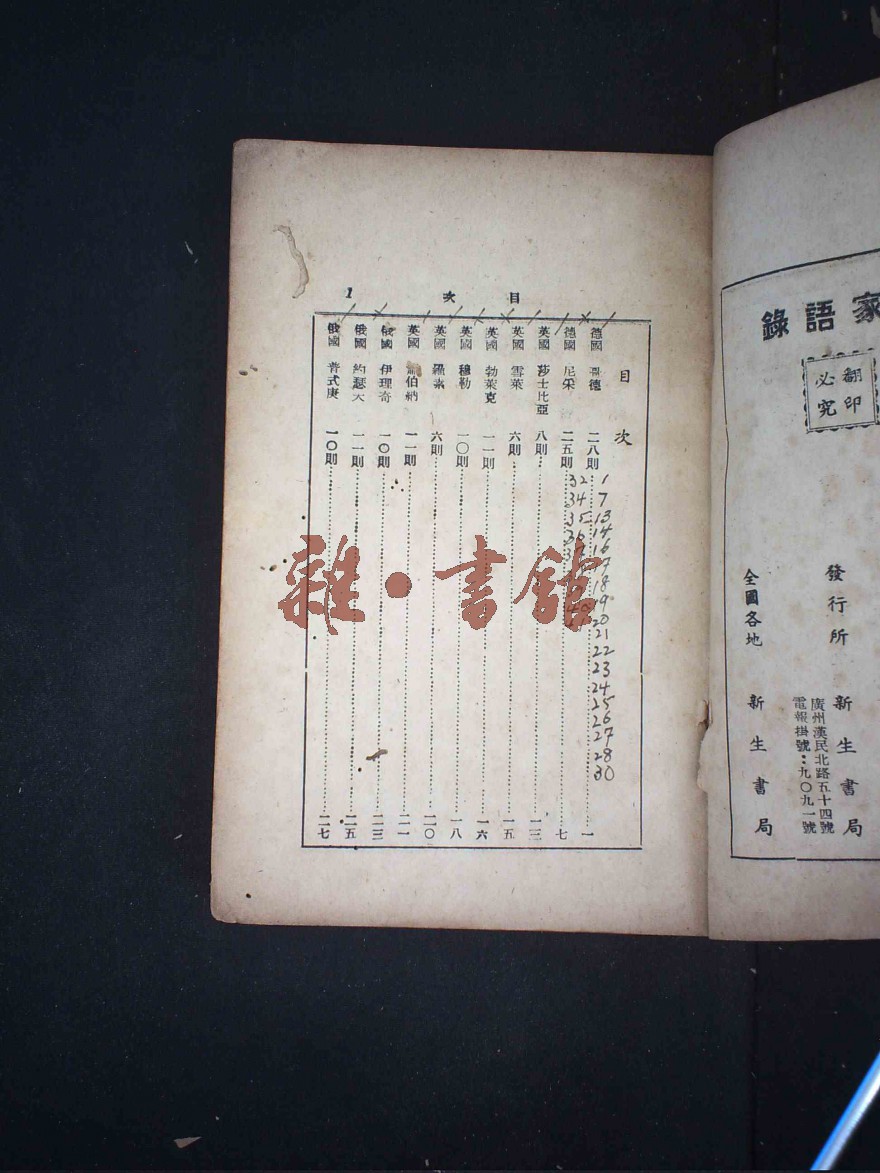 家語錄
翻印
必究
發行所 新生書局
廣州漢民北路五十四號
電報掛號：九〇九一號
全國各地 新生書局
目次 1
目次
德國 哥德 二八則 一
德國 尼采 二五則 七
英國 莎士比亞 八則 一三
英國 雪萊 六則 一五
英國 勃萊克 一一則 一六
英國 穆勒 一〇則 一八
英國 羅素 六則 二〇
英國 蕭伯納 一一則 二一
俄國 伊理奇 一〇則 二三
俄國 約瑟夫 一一則 二五
俄國 普式庚 一〇則 二七
1
7
13
14
16
17
18
19
20
21
22
23
24
25
26
27
28
30
32
34
35
36
雜·書館